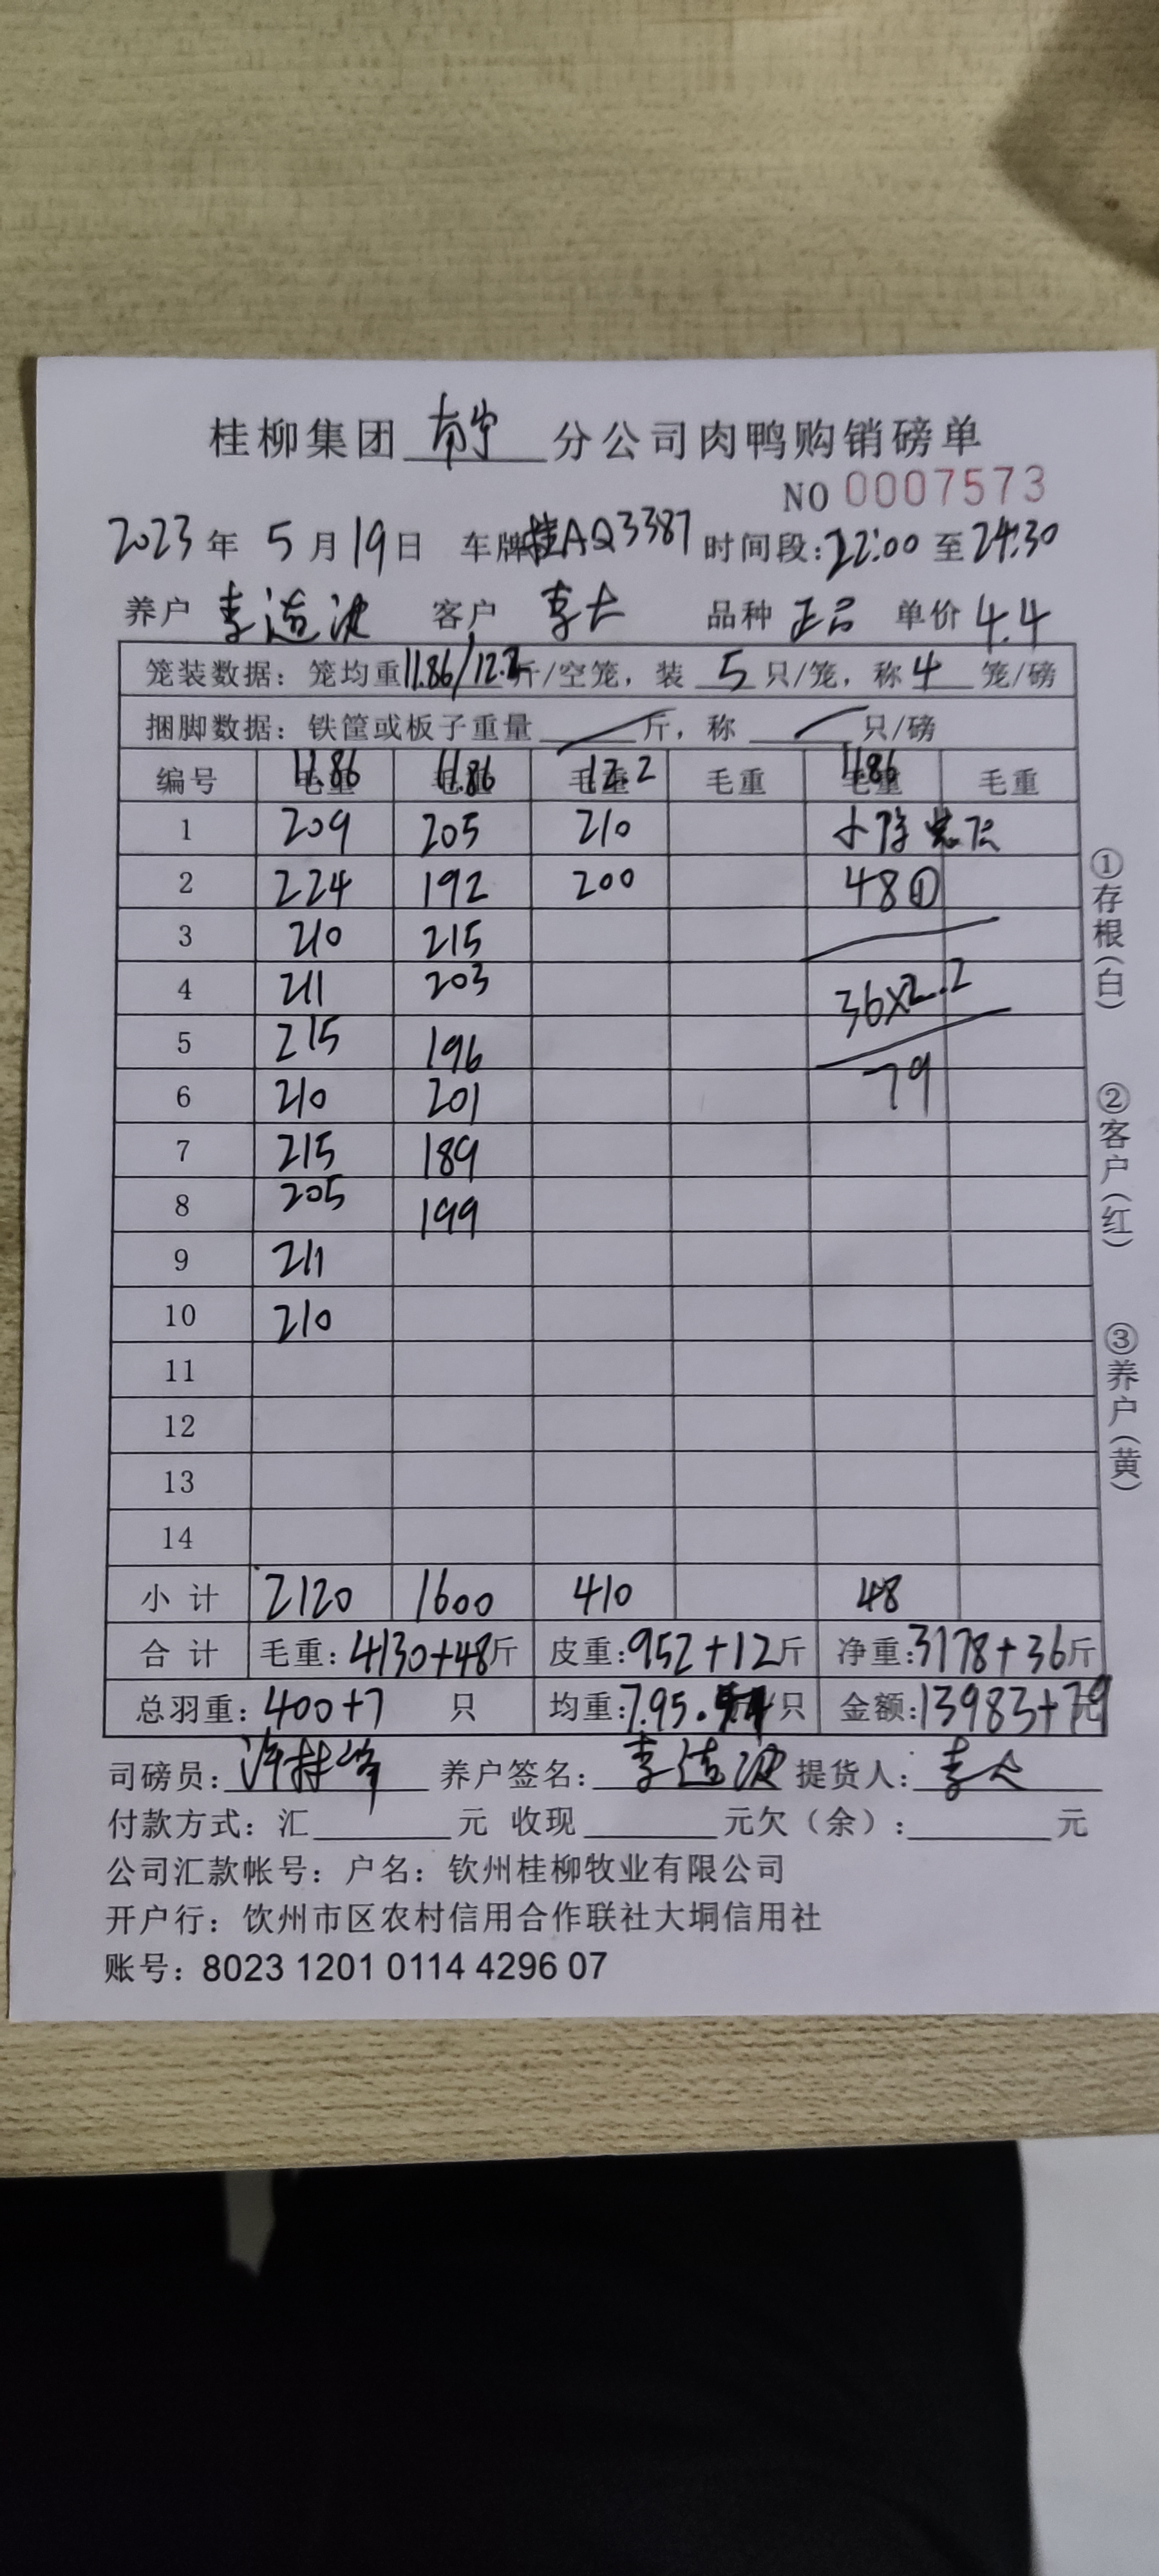 桂柳集团 南宁 分公司肉鸭购销磅单
NO 0007573
2023 年 5 月 19 日 车牌 桂AQ3387 时间段: 22:00 至 24:30
养户 李 客户 李 品种 正品 单价 4.4
笼装数据: 笼均重 11.86/12.2 斤/空笼, 装 5 只/笼, 称 4 笼/磅
捆脚数据: 铁筐或板子重量 斤, 称 只/磅
编号 毛重 11.86 毛重 11.86 毛重 12.2 毛重 毛重 11.86 毛重
1 209 205 210
2 224 192 200 48 ①
3 210 215
4 211 203 36x2.2
5 215 196
6 210 201 79
7 215 189
8 205 199
9 211
10 210
11
12
13
14
小计 2120 1600 410 48
合计 毛重: 4130+48 斤 皮重: 952+12 斤 净重: 3178+36 斤
总羽重: 400+7 只 均重: 7.95 只 金额: 13983+79 元
司磅员: 养户签名: 李 提货人: 李
付款方式: 汇 元 收现 元欠(余): 元
公司汇款帐号: 户名: 钦州桂柳牧业有限公司
开户行: 饮州市区农村信用合作联社大垌信用社
账号: 8023 1201 0114 4296 07
①存根(白)
②客户(红)
③养户(黄)